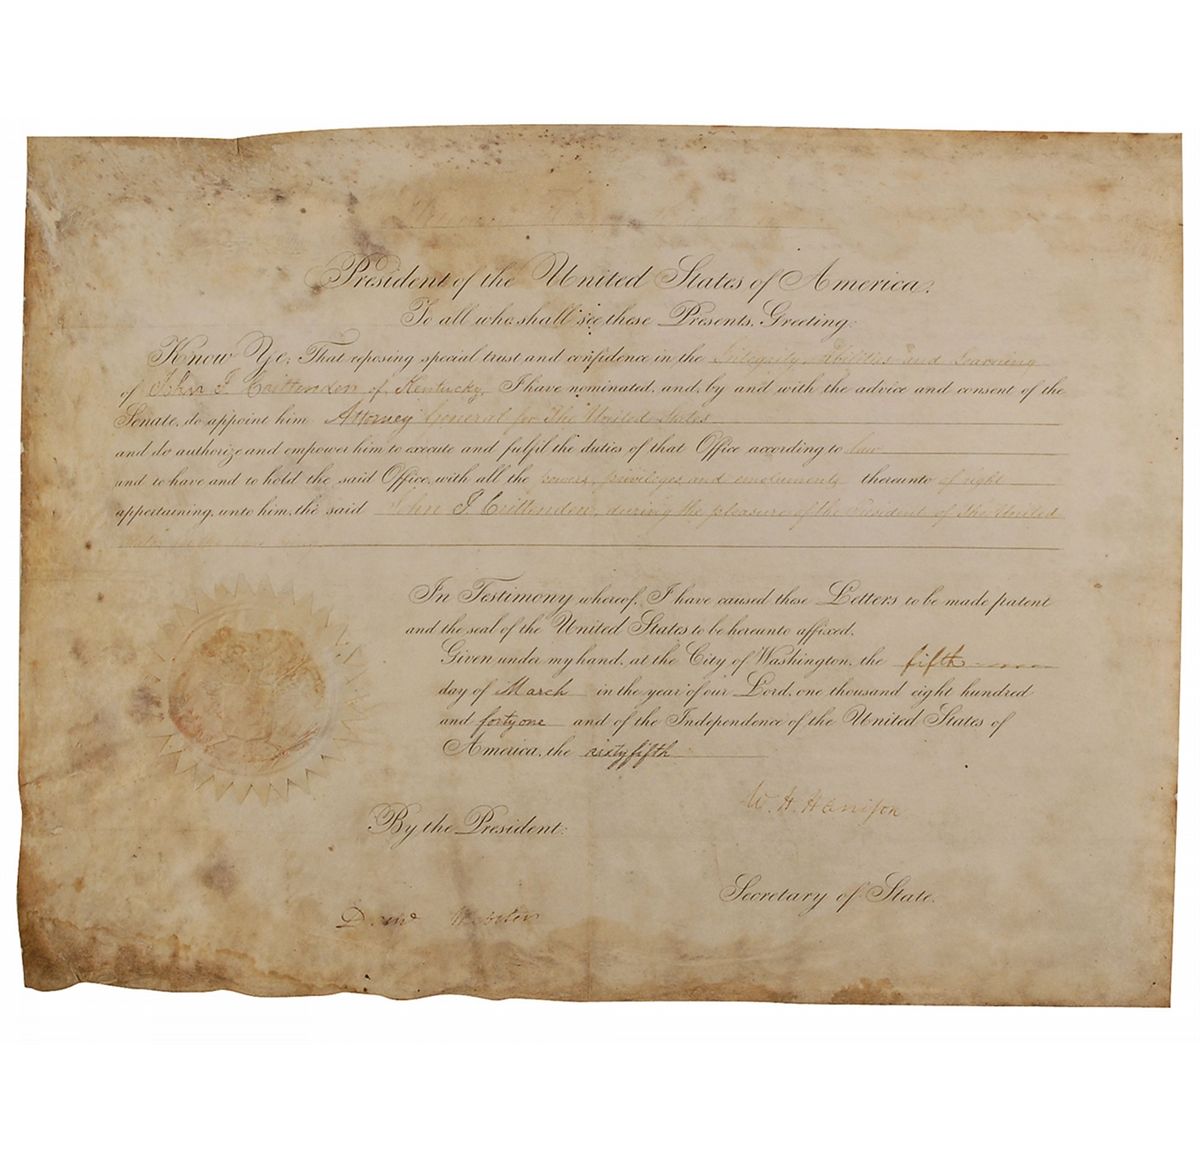 President of the United States of America.
To all who shall see these Presents, Greeting:
Know Ye; That reposing special trust and confidence in the Integrity, Abilities and Learning
of John J. Crittenden of Kentucky, I have nominated, and, by and with the advice and consent of the
Senate, do appoint him Attorney General for the United States
and do authorize and empower him to execute and fulfil the duties of that Office according to law
and to have and to hold the said Office, with all the powers, privileges and emoluments thereunto of right
appertaining, unto him, the said John J. Crittenden, during the pleasure of the President of the United
States for the time being.
In Testimony whereof, I have caused these Letters to be made patent
and the seal of the United States to be hereunto affixed.
Given under my hand, at the City of Washington, the fifth
day of March in the year of our Lord, one thousand eight hundred
and forty one and of the Independence of the United States of
America, the sixty fifth
W. H. Harrison
By the President:
Secretary of State.
Danl Webster